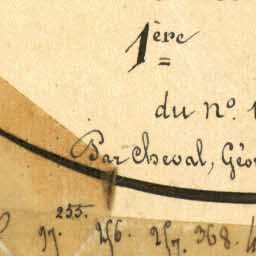 1ère
du nº. 1
Par Cheval, Géo
255.
97. 256. 257. 368.